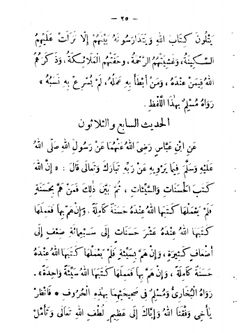 — ٣٥ —
يَتْلُونَ كِتَابَ اللهِ وَيَتَدَارَسُونَهُ بَيْنَهُمْ إِلَّا نَزَلَتْ عَلَيْهِمُ
السَّكِينَةُ، وَغَشِيَتْهُمُ الرَّحْمَةُ، وَحَفَّتْهُمُ الْمَلَائِكَةُ، وَذَكَرَهُمُ
اللهُ فِيمَنْ عِنْدَهُ، وَمَنْ أَبْطَأَ بِهِ عَمَلُهُ، لَمْ يُسْرِعْ بِهِ نَسَبُهُ»
رَوَاهُ مُسْلِمٌ بِهٰذَا اللَّفْظِ.
الحديث السابع والثلاثون
عَنِ ابْنِ عَبَّاسٍ رَضِيَ اللهُ عَنْهُمَا عَنْ رَسُولِ اللهِ صَلَّى اللهُ
عَلَيْهِ وَسَلَّمَ فِيمَا يَرْوِيهِ عَنْ رَبِّهِ تَبَارَكَ وَتَعَالَى قَالَ: «إِنَّ اللهَ
كَتَبَ الْحَسَنَاتِ وَالسَّيِّئَاتِ، ثُمَّ بَيَّنَ ذٰلِكَ فَمَنْ هَمَّ بِحَسَنَةٍ
فَلَمْ يَعْمَلْهَا كَتَبَهَا اللهُ عِنْدَهُ حَسَنَةً كَامِلَةً، وَإِنْ هَمَّ بِهَا فَعَمِلَهَا
كَتَبَهَا اللهُ عِنْدَهُ عَشْرَ حَسَنَاتٍ إِلَى سَبْعِمِائَةِ ضِعْفٍ إِلَى
أَضْعَافٍ كَثِيرَةٍ، وَإِنْ هَمَّ بِسَيِّئَةٍ فَلَمْ يَعْمَلْهَا كَتَبَهَا اللهُ عِنْدَهُ
حَسَنَةً كَامِلَةً، وَإِنْ هَمَّ بِهَا فَعَمِلَهَا كَتَبَهَا اللهُ سَيِّئَةً وَاحِدَةً».
رَوَاهُ الْبُخَارِيُّ وَمُسْلِمٌ فِي صَحِيحَيْهِمَا بِهٰذِهِ الْحُرُوفِ «فَانْظُرْ
يَا أَخِي وَفَّقَنَا اللهُ وَإِيَّاكَ إِلَى عَظِيمِ لُطْفِ اللهِ تَعَالَى وَتَأَمَّلْ